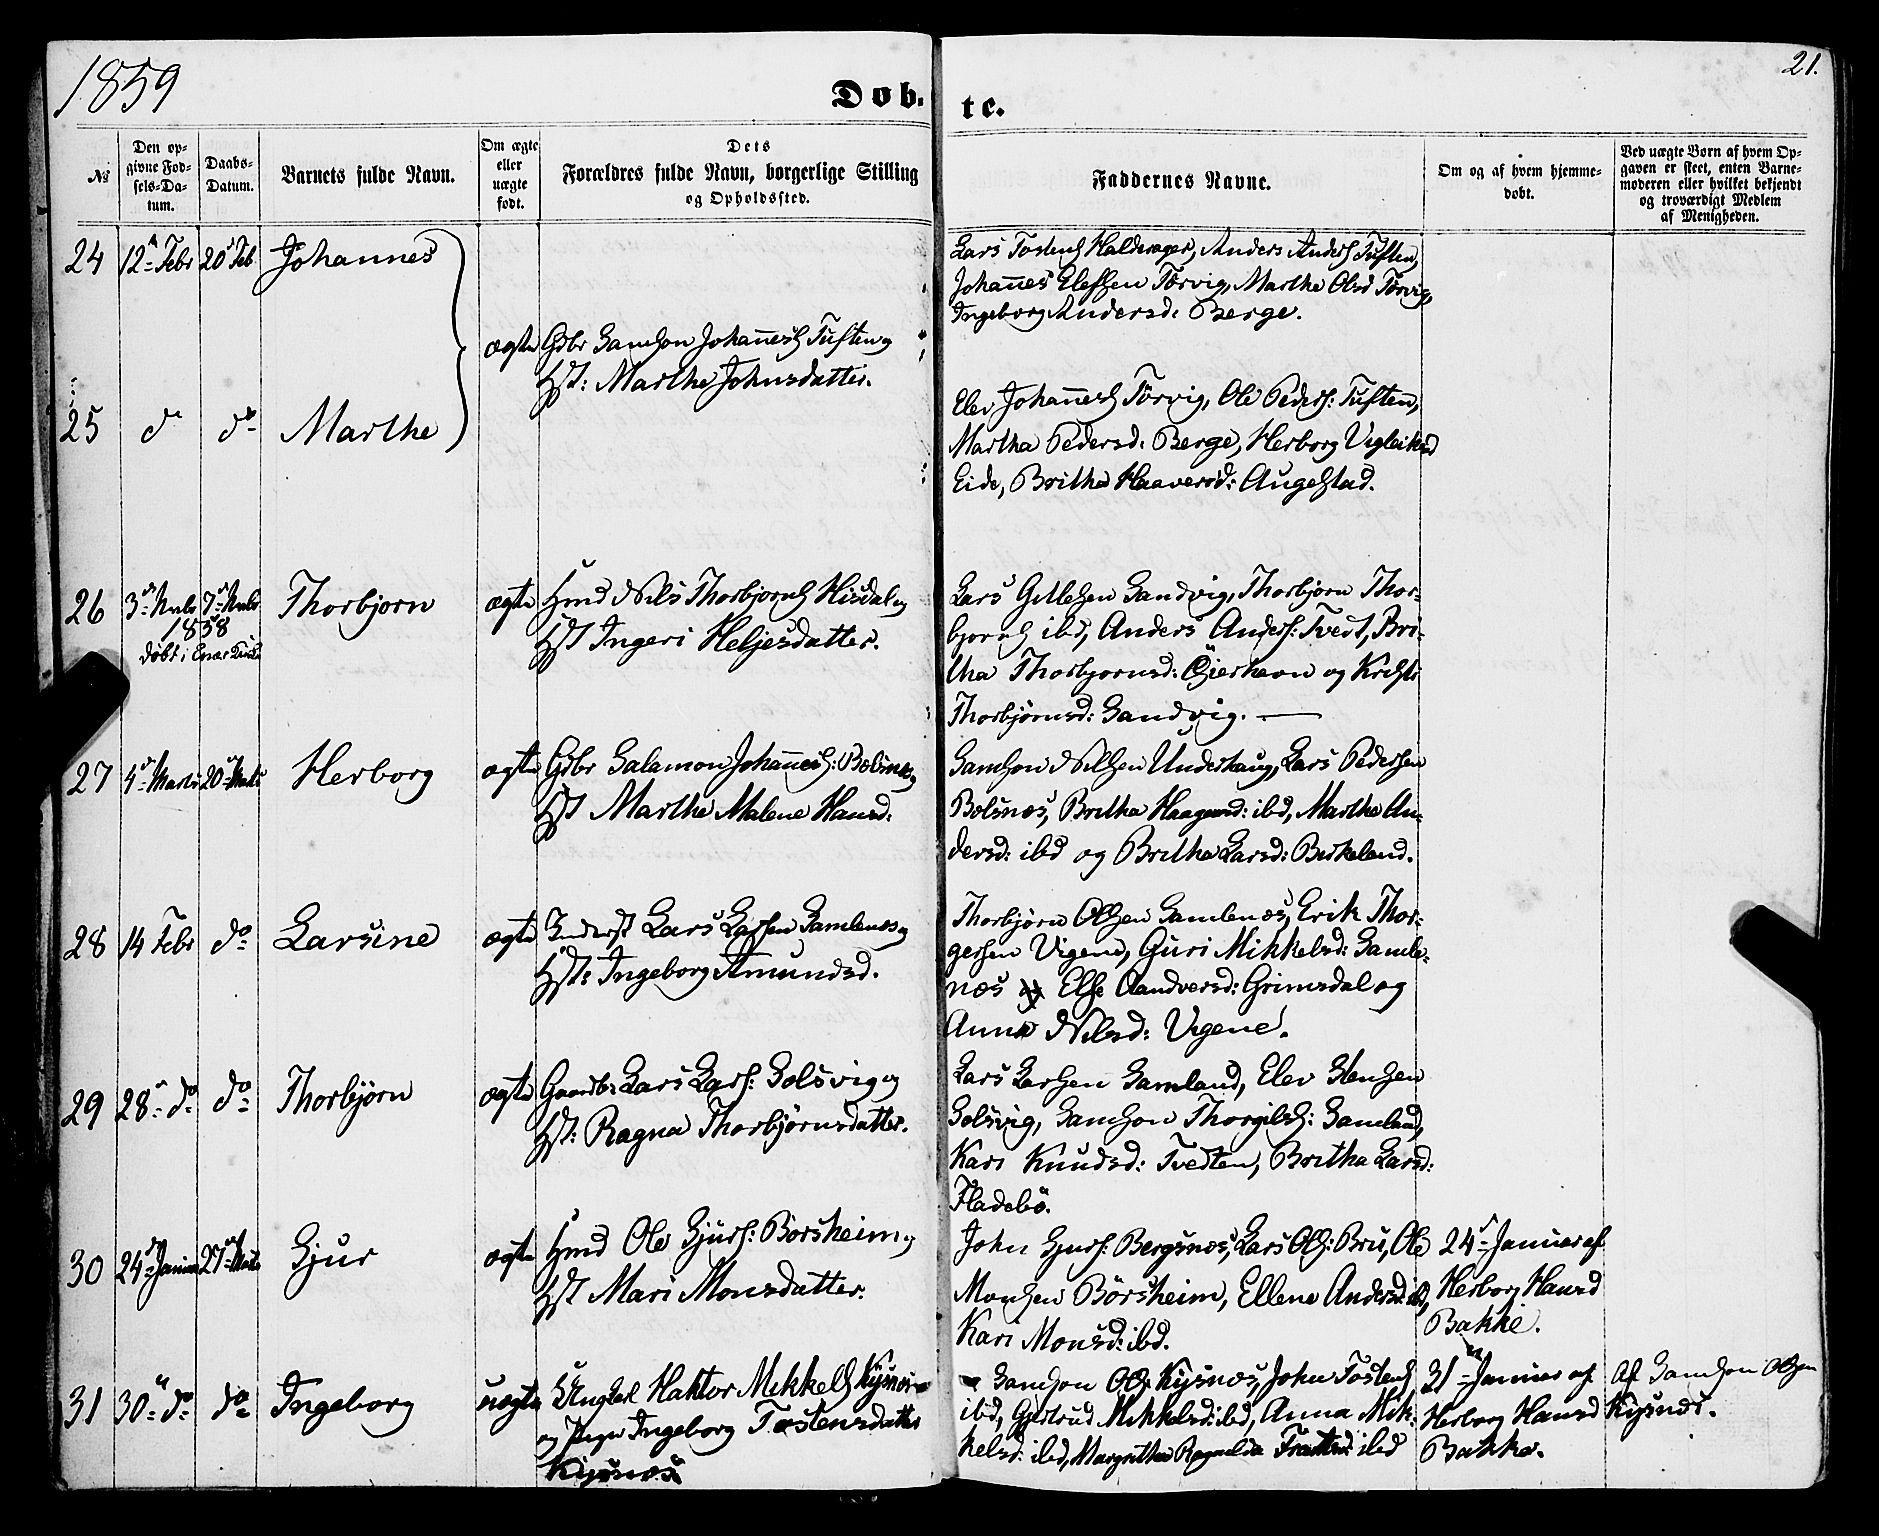 1859
21.
Døb. te.
No
Den op-
givne Fød-
sels-Da-
tum.
Daabs-
Datum.
Barnets fulde Navn.
Om ægte
eller
uægte
født.
Dets
Forældres fulde Navn, borgerlige Stilling
og Opholdssted.
Faddernes Navne.
Om og af hvem hjemme-
døbt.
Ved uægte Børn af hvem Op-
gaven er skeet, enten Barne-
moderen eller hvilket bekjendt
og troværdigt Medlem
af Menigheden.
24 12 Febr 20 Feb Johannes
ægte Gdbr Samson Johannes Tuften og
Hst: Marthe Johnsdatter.
Lars Tostens Halderager, Anders Anders Tuften,
Johannes Elefsen Törvig, Marthe Olsd Törvig,
Ingeborg Andersd: Berge.
25 do do Marthe
Elev Johannes Törvig, Ole Peders: Tuften,
Martha Pedersd: Berge, Herborg Vigleiksd
Eide, Britha Haaversd: Augestad.
26 3 Nvbr 7 Nvbr
1858
döbt i Enær Kirke
Thorbjorn
ægte Hmd Nils Thorbjorns Hisdal og
Hst Ingeri Heljesdatter.
Lars Gitlesen Sandvig, Thorbjorn Thor-
bjorns ibd, Anders Anders: Tvedt, Bri-
tha Thorbjornsd: Öierhavn og Kristi
Thorbjörnsd: Sandvig.
27 4 Marts 20 Marts Herborg
ægte Gdbr Salamon Johannes: Bolsnæs og
Hst Marthe Malene Hansd:
Samson Nilsen Underhaug, Lars Pedersen
Bolsnæs, Britha Haagensd: ibd, Marthe An-
dersd: ibd og Britha Larsd: Birkeland.
28 14 Febr do Larsine
ægte Inderst Lars Larsen Samlenæs og
Hst: Ingeborg Amundsd.
Thorbjörn Olsen Samlenæs, Erik Thor-
gersen Vigene, Guri Mikkelsd: Samle-
næs og Else Aandversd: Grimsdal og
Anna Nilsd: Vigene.
29 28 do do Thorbjörn
ægte Gaardbr Lars Lars: Solsvig og
Hst: Ragna Thorbjørnsdatter.
Lars Larsen Samland, Elev Stensen
Solsvig, Samson Thorgils: Samland,
Kari Knudsd: Tvedten, Britha Larsd:
Fladebö.
30 24 Januar 27 Marts Sjur
ægte Hmd Ole Sjurs: Börsheim og
Hst Mari Monsdatter.
John Sjurs: Bergsnæs, Lars Ols: Bru, Ole
Monsen Börsheim, Ellene Andersd: ibd,
Kari Monsd: ibd.
24 Januar af
Herborg Hansd
Bakke.
31 30 do do Ingeborg
uægte Ungkarl Haktor Mikkels Kysnæs
og Pige Ingeborg Tostensdatter
Kysnæs
Samson Ols Kysnæs, John Tostens
ibd, Gjertrud Mikkelsd: ibd, Anna Mik-
kelsd: ibd, Margritha Ragnilda ibd
31 Januar af
Herborg Hansd
Bakke.
Af Samson Olsen
Kysnæs.